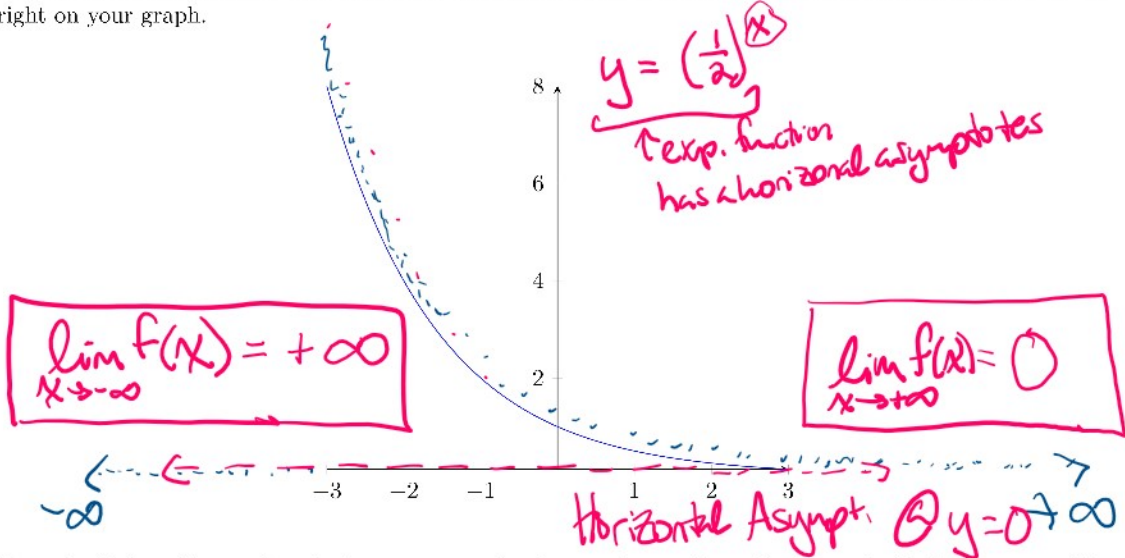 right on your graph.
y = (1/2)^x
↑ exp. function
has a horizonal asymptotes
8
6
4
2
lim f(x) = +∞
x→-∞
lim f(x) = 0
x→+∞
-3 -2 -1 1 2 3
-∞
+∞
Horizontal Asympt. @ y=0